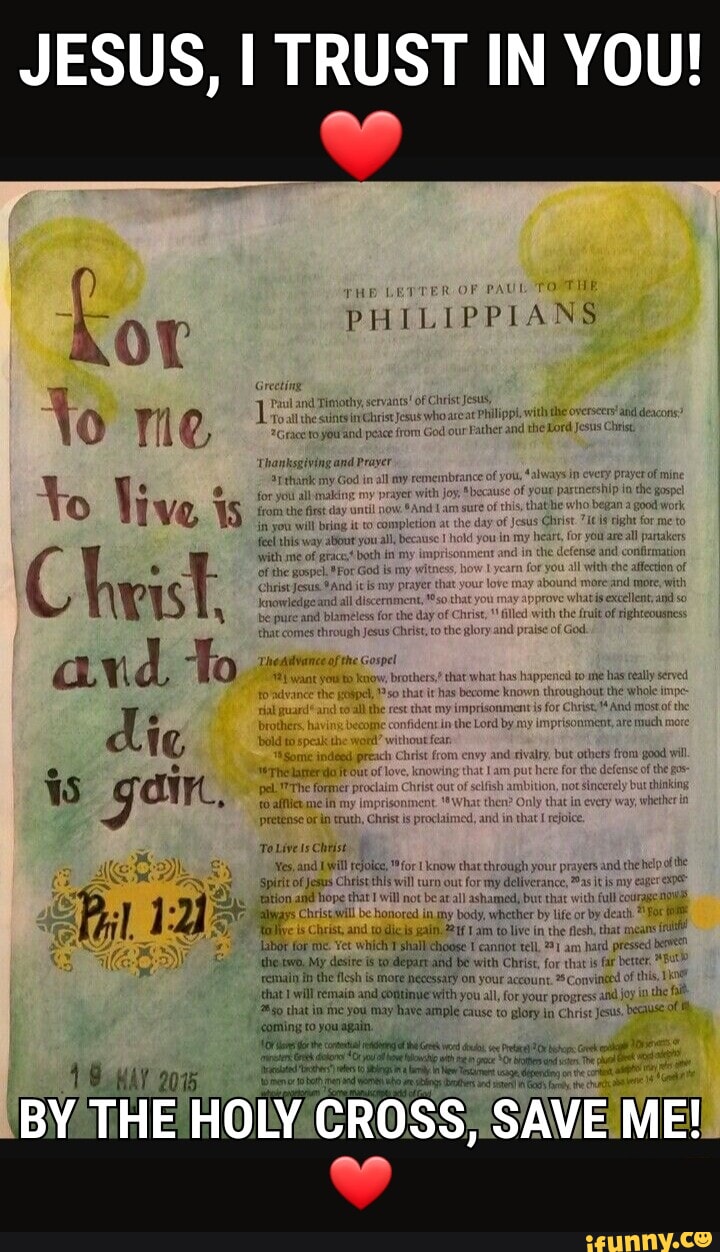 JESUS, I TRUST IN YOU!
for
to me
to live is
Christ,
and to
die
is gain.
Phil. 1:21
19 MAY 2015
THE LETTER OF PAUL TO THE
PHILIPPIANS
Greeting
1 Paul and Timothy, servants¹ of Christ Jesus,
To all the saints in Christ Jesus who are at Philippi, with the overseers² and deacons:³
²Grace to you and peace from God our Father and the Lord Jesus Christ.
Thanksgiving and Prayer
³I thank my God in all my remembrance of you, ⁴always in every prayer of mine
for you all making my prayer with joy, ⁵because of your partnership in the gospel
from the first day until now. ⁶And I am sure of this, that he who began a good work
in you will bring it to completion at the day of Jesus Christ. ⁷It is right for me to
feel this way about you all, because I hold you in my heart, for you are all partakers
with me of grace,⁴ both in my imprisonment and in the defense and confirmation
of the gospel. ⁸For God is my witness, how I yearn for you all with the affection of
Christ Jesus. ⁹And it is my prayer that your love may abound more and more, with
knowledge and all discernment, ¹⁰so that you may approve what is excellent, and so
be pure and blameless for the day of Christ, ¹¹filled with the fruit of righteousness
that comes through Jesus Christ, to the glory and praise of God.
The Advance of the Gospel
¹²I want you to know, brothers,⁵ that what has happened to me has really served
to advance the gospel, ¹³so that it has become known throughout the whole impe-
rial guard⁶ and to all the rest that my imprisonment is for Christ. ¹⁴And most of the
brothers, having become confident in the Lord by my imprisonment, are much more
bold to speak the word⁷ without fear.
¹⁵Some indeed preach Christ from envy and rivalry, but others from good will.
¹⁶The latter do it out of love, knowing that I am put here for the defense of the gos-
pel. ¹⁷The former proclaim Christ out of selfish ambition, not sincerely but thinking
to afflict me in my imprisonment. ¹⁸What then? Only that in every way, whether in
pretense or in truth, Christ is proclaimed, and in that I rejoice.
To Live Is Christ
Yes, and I will rejoice, ¹⁹for I know that through your prayers and the help of the
Spirit of Jesus Christ this will turn out for my deliverance, ²⁰as it is my eager expec-
tation and hope that I will not be at all ashamed, but that with full courage now as
always Christ will be honored in my body, whether by life or by death. ²¹For to me
to live is Christ, and to die is gain. ²²If I am to live in the flesh, that means fruitful
labor for me. Yet which I shall choose I cannot tell. ²³I am hard pressed between
the two. My desire is to depart and be with Christ, for that is far better. ²⁴But to
remain in the flesh is more necessary on your account. ²⁵Convinced of this, I know
that I will remain and continue with you all, for your progress and joy in the
²⁶so that in me you may have ample cause to glory in Christ Jesus, because of
coming to you again.
¹Or slaves (for the contextual rendering of the Greek word doulos, see Preface) ²Or bishops; Greek
BY THE HOLY CROSS, SAVE ME!
ifunny.co